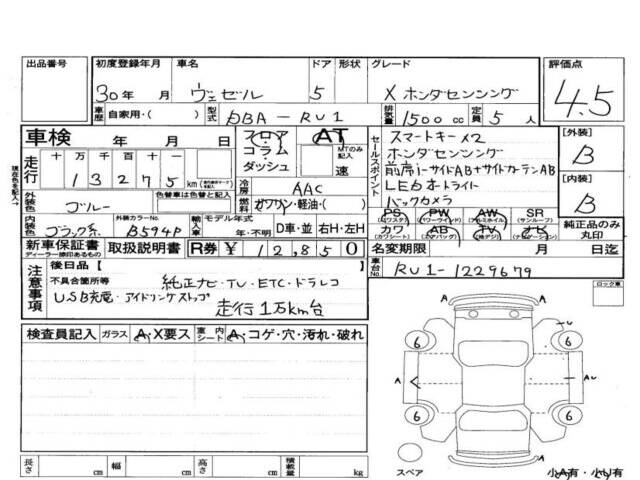 出品番号 初度登録年月 車名 ドア 形状 グレード 評価点
30年 月 ヴェゼル 5 X ホンダセンシング 4.5
車歴 自家用・( ) 型式 DBA-RU1 排気量 1500cc 定員 5人
車検 年 月 日 フロア コラム ダッシュ AT MTのみ記入 速
現在色を記入→
走行 十万千百十一
13275 km
冷房 AAC
外装色 ブルー 色替車は元色 色替車 燃料 ガソリン・軽油・( )
内装色 ブラック系 外装カラーNo. B594P 輸入車 モデル年式 年・不明 D車・並 右H・左H
セールスポイント
スマートキー×2
ホンダセンシング
前席i-サイドAB+サイドカーテンAB
LEDオートライト
バックカメラ
PS (パワステ) PW (パワーウィンドウ) AW (アルミホイル) SR (サンルーフ)
カワ (カワシート) AB (エアバッグ) TV (地デジ) ナビ (ナビゲーション) 純正品のみ丸印
[外装] B
[内装] B
新車保証書 ディーラー捺印あるもの 取扱説明書 R券 ¥12,850 名変期限 月 日迄
車台No. RU1-1229679
注意事項
後日品 [ ]
不具合箇所等 純正ナビ・TV・ETC・ドラレコ
USB充電・アイドリングストップ
走行1万km台
ロック車
検査員記入 ガラス A・X要ス 車内シート A・コゲ・穴・汚れ・破れ
6 6
A A AU
6 6
A
スペア 小A有・小U有
長さ cm 幅 cm 高さ cm 積載量 kg